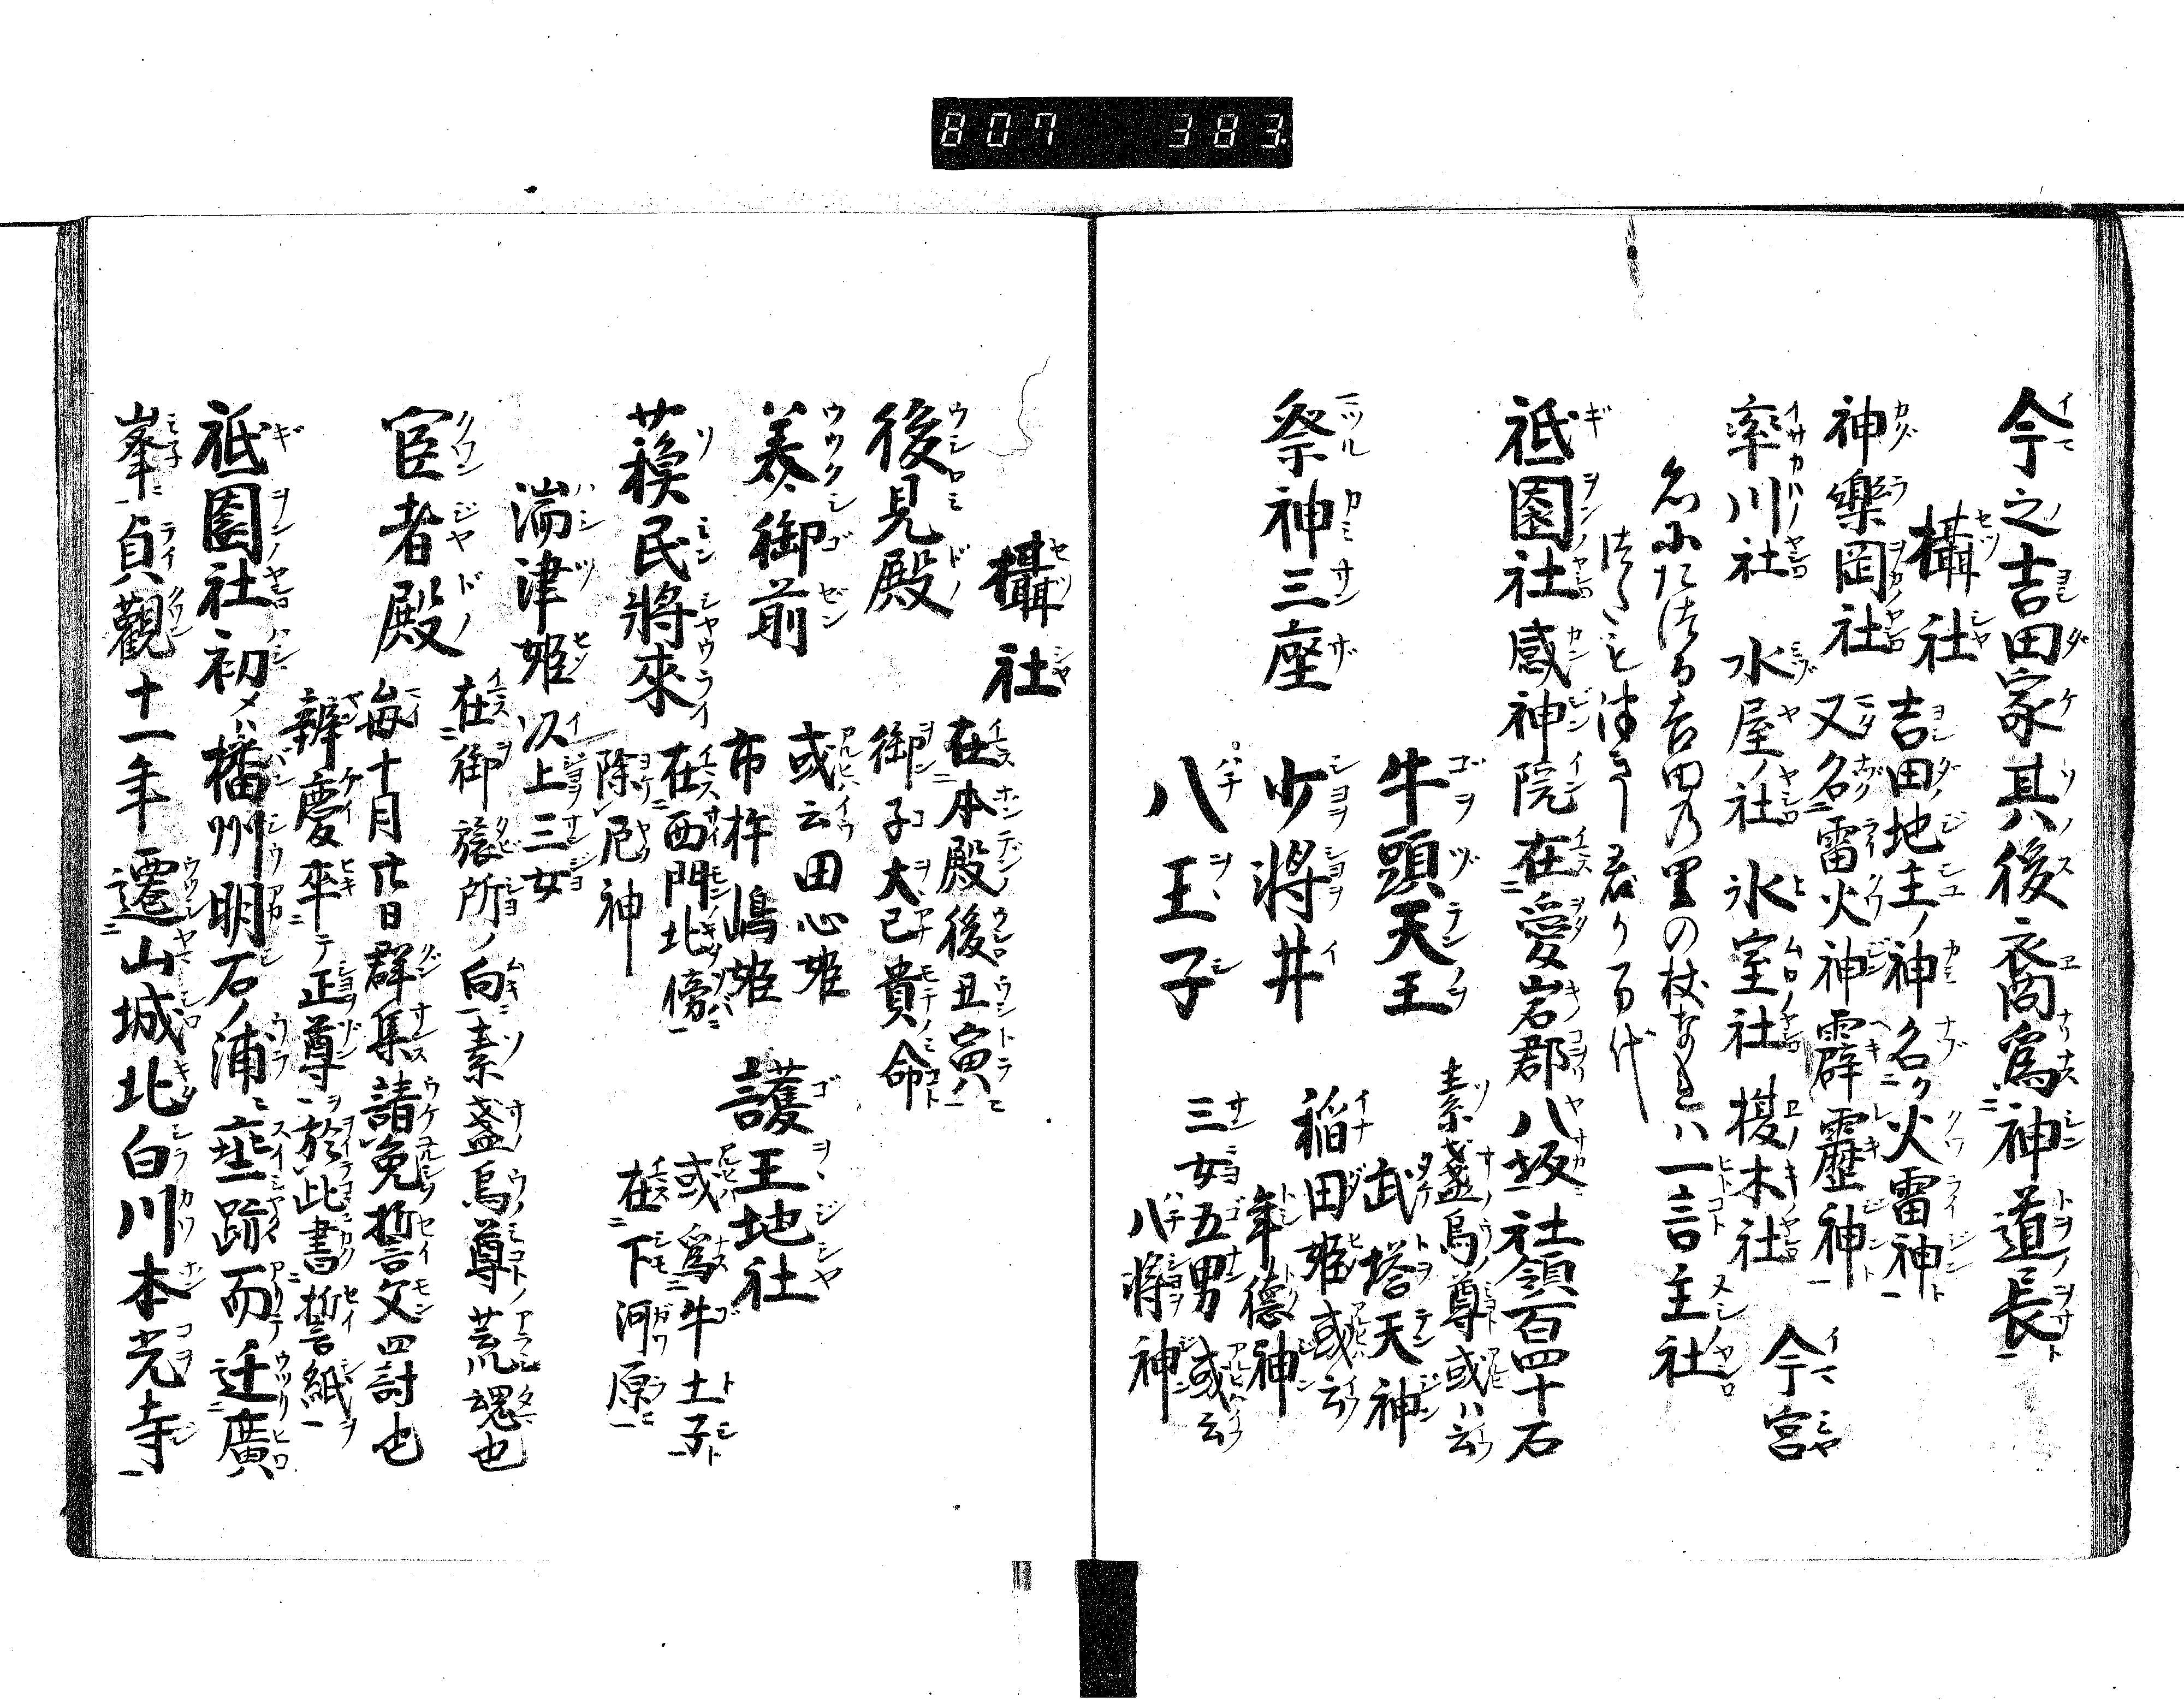 807 383
今之吉田家其後裔爲神道長
攝社
吉田地主ノ神名ク火雷神
神樂岡社
又名雷火神霹靂神
率川社 水屋ノ社 氷室社 榎木社 今宮
名にたてる吉田の里の杖なれハ
つくとも つきし君か万代
一言主社
祇園社感神院在愛宕郡八坂社領百四十石
祭神三座
牛頭天王
素盞烏尊或ハ云
武塔天神
少將井
稲田姫或云
年德神
八王子
三女五男或云
八將神
攝社
後見殿
在本殿後丑寅
御子大己貴命
美御前
或云田心姫
市杵嶋姫
湍津姫以上三女
護王地社
或爲牛土子
在下河原
蘓民將來
在西門北傍
除厄神
宦者殿
在御旅所ノ向素盞烏尊荒魂也
毎十月廿日群集請免誓文四討也
辨慶卒テ正尊於此書誓紙
祇園社初メハ播州明石ノ浦ニ垂跡而迁廣
峯貞觀十一年遷山城北白川本光寺